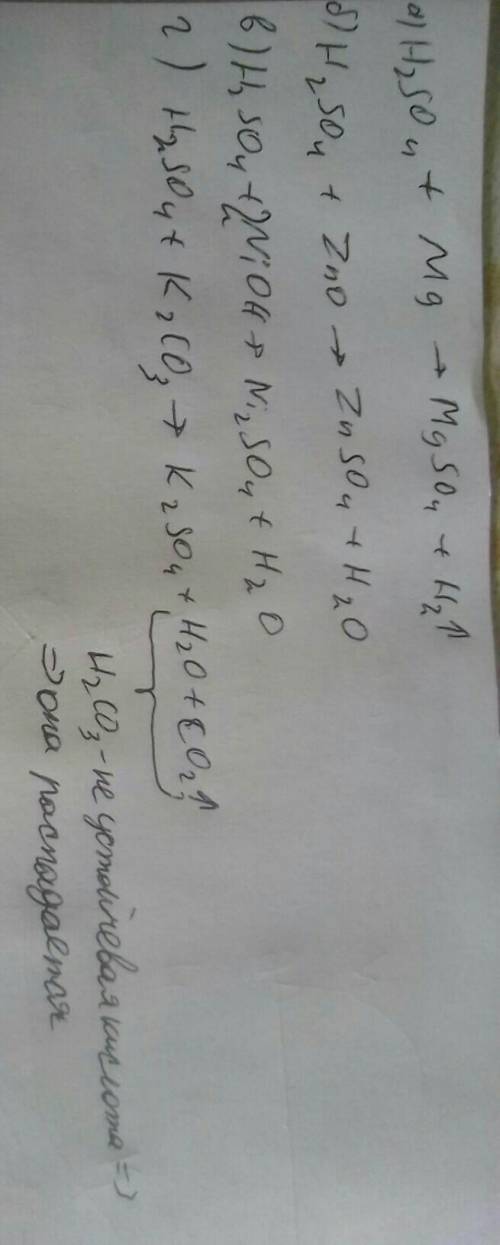 а) H₂SO₄ + Mg → MgSO₄ + H₂↑
б) H₂SO₄ + ZnO → ZnSO₄ + H₂O
в) H₂SO₄ + 2NiOH → Ni₂SO₄ + H₂O
г) H₂SO₄ + K₂CO₃ → K₂SO₄ + H₂O + CO₂↑
H₂CO₃ - не устойчевая кислота =>
=> она распадается